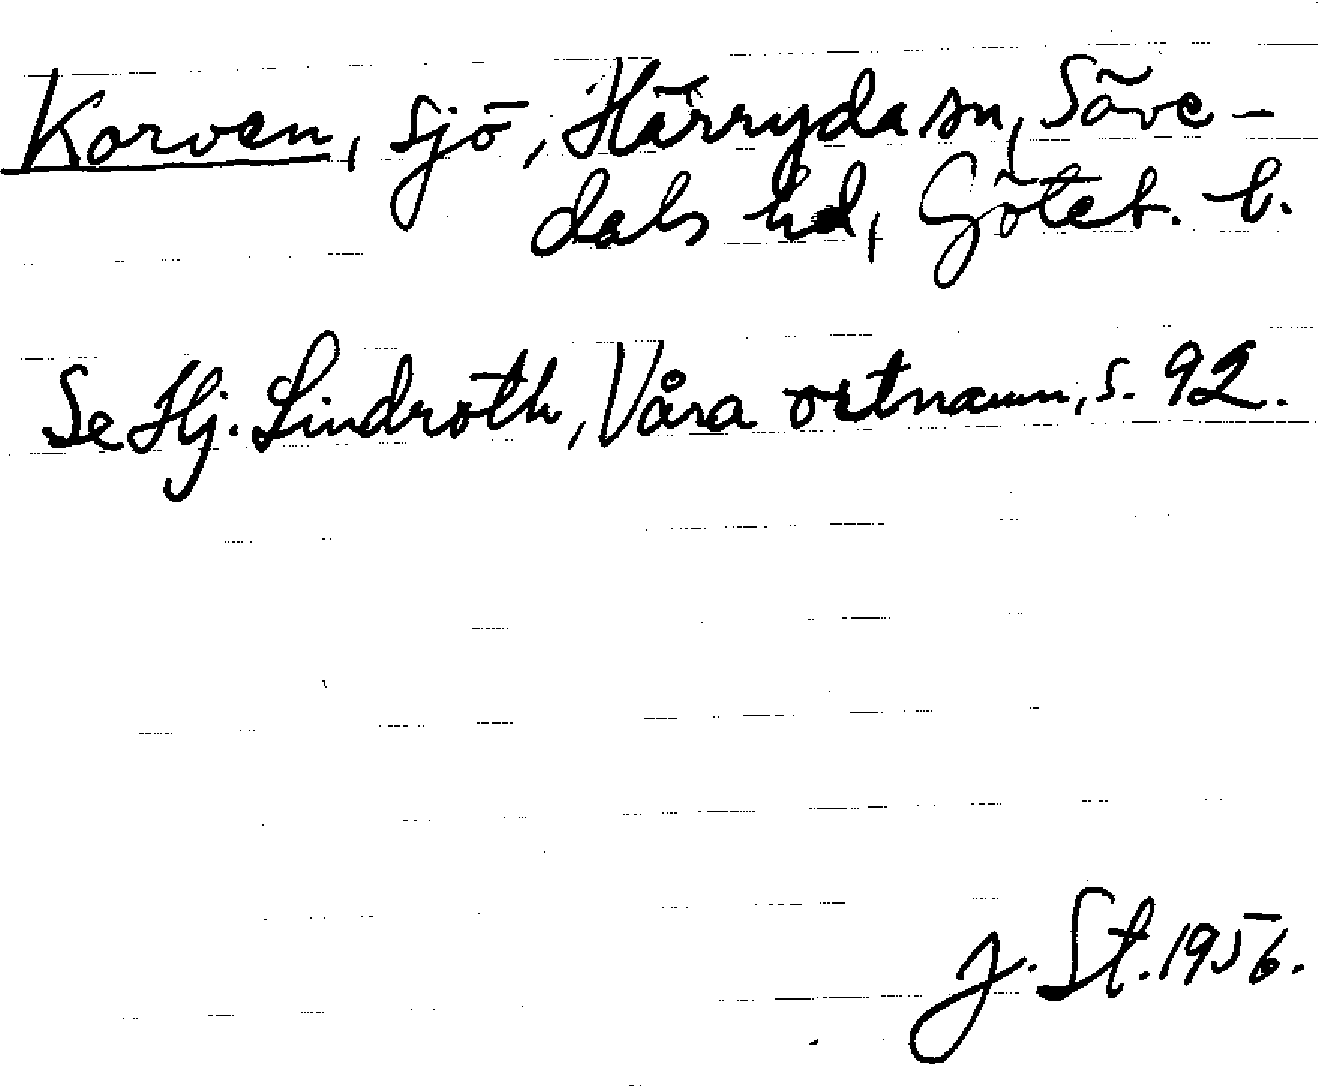 Korven, sjö, Härryda sn, Säve-
dals hd, Göteb. l.
Se Hj. Lindroth, Våra ortnamn, s. 92.
J. St. 1956.